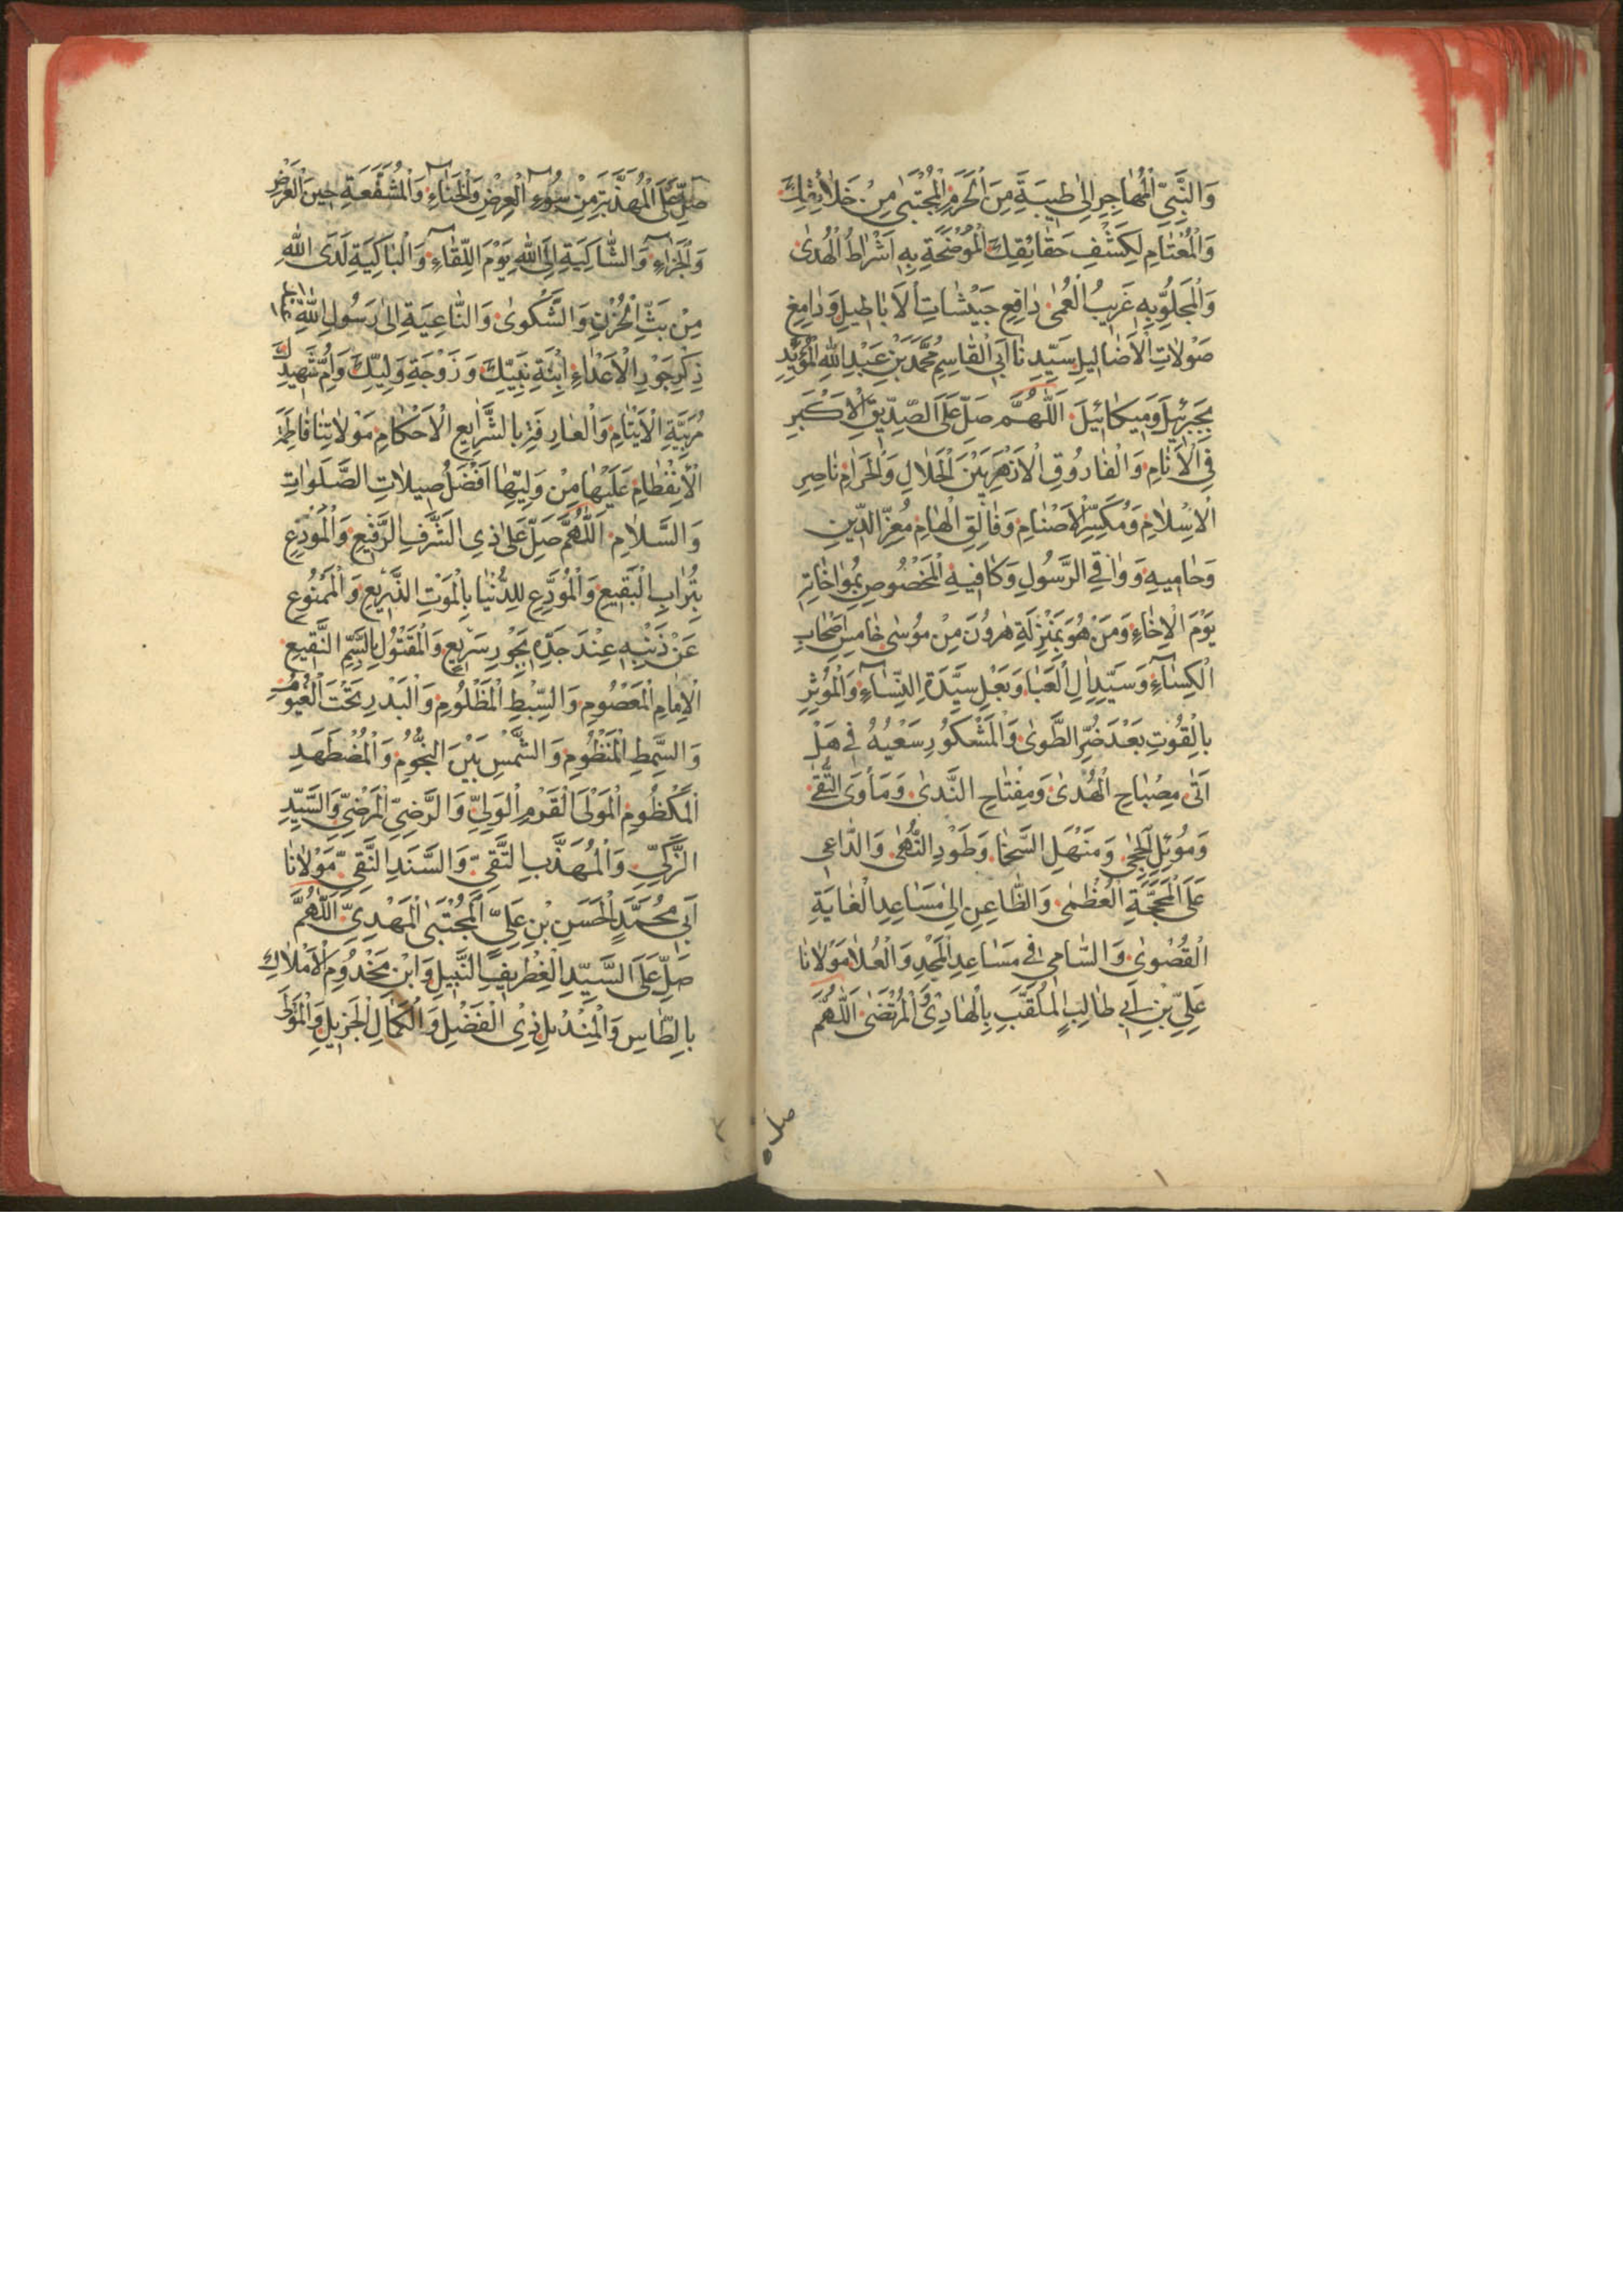 وَالنَّبِيِّ الْمُهَاجِرِ اِلىٰ طَيْبَةَ مِنَ الْحَرَمِ الْمُجْتَبىٰ مِنْ خَلَائِقِكَ
وَالْمُعْتَامِ لِكَشْفِ حَقَائِقِكَ الْمُوْضَحَةِ بِهِ اَشْرَاطُ الْهُدىٰ
وَالْمَجْلُوِّ بِهِ غَرِيبُ الْعَمىٰ دَافِعِ جَيْشَاتِ الْاَبَاطِيلِ وَدَامِغِ
صَوْلَاتِ الْاَضَالِيلِ سَيِّدِنَا اَبِي الْقَاسِمِ مُحَمَّدِ بْنِ عَبْدِ اللهِ الْمُؤَيَّدِ
بِجَبْرَئِيلَ وَمِيكَائِيلَ اَللّٰهُمَّ صَلِّ عَلَى الصِّدِّيقِ الْاَكْبَرِ
فِي الْاَنَامِ وَالْفَارُوقِ الْاَزْهَرِ بَيْنَ الْحَلَالِ وَالْحَرَامِ نَاصِرِ
الْاِسْلَامِ وَمُكَسِّرِ الْاَصْنَامِ وَفَالِقِ الْهَامِ مُعِزِّ الدِّينِ
وَحَامِيهِ وَوَاقِي الرَّسُولِ وَكَافِيهِ الْمَخْصُوصِ بِمُوَاخَاتِهِ
يَوْمَ الْاِخَاءِ وَمَنْ هُوَ بِمَنْزِلَةِ هٰرُونَ مِنْ مُوسىٰ خَامِسِ اَصْحَابِ
الْكِسَاءِ وَسَيِّدِ اٰلِ الْعَبَا وَبَعْلِ سَيِّدَةِ النِّسَاءِ وَالْمُؤْثِرِ
بِالْقُوتِ بَعْدَ ضُرِّ الطَّوىٰ وَالْمَشْكُورِ سَعْيُهُ فِي هَلْ
اَتىٰ مِصْبَاحِ الْهُدىٰ وَمِفْتَاحِ النَّدىٰ وَمَأْوَى التُّقىٰ
وَمُوئِلِ الْحِجىٰ وَمَنْهَلِ السَّخَا وَطَوْدِ النُّهىٰ وَالدَّاعِي
عَلَى الْمَحَجَّةِ الْعُظْمىٰ وَالظَّاعِنِ اِلىٰ مَسَاعِدِ الْغَايَةِ
الْقُصْوىٰ وَالسَّامِي فِي مَسَاعِدِ الْمَجْدِ وَالْعُلَا مَوْلَانَا
عَلِيِّ بْنِ اَبِي طَالِبٍ الْمُلَقَّبِ بِالْهَادِي وَالْمُرْتَضىٰ اَللّٰهُمَّ
صل
صَلِّ عَلَى الْمُهَذَّبَةِ مِنْ سُوءِ الْعِرْضِ وَالْخَنَاءِ وَالْمُشَفَّعَةِ حِينَ الْعَرْضِ
وَالْجَزَاءِ وَالشَّاكِيَةِ اِلَى اللهِ يَوْمَ اللِّقَاءِ وَالْبَاكِيَةِ لَدَى اللهِ
مِنْ بَثِّ الْحُزْنِ وَالشَّكْوىٰ وَالنَّاعِيَةِ اِلىٰ رَسُولِ اللهِ
ذِكْرِ جَوْرِ الْاَعْدَاءِ ابْنَةِ نَبِيِّكَ وَزَوْجَةِ وَلِيِّكَ وَاُمِّ شَهِيدِكَ
مُرَبِّيَةِ الْاَيْتَامِ وَالْعَارِفَةِ بِالشَّرَايِعِ الْاَحْكَامِ مَوْلَاتِنَا فَاطِمَةَ
الْاِنْفِطَامِ عَلَيْهَا مِنْ وَلِيِّهَا اَفْضَلُ صِيلَاتِ الصَّلَوَاتِ
وَالسَّلَامِ اَللّٰهُمَّ صَلِّ عَلىٰ ذِي الشَّرَفِ الرَّفِيعِ وَالْمُوْدَعِ
بِتُرَابِ الْبَقِيعِ وَالْمُوَدِّعِ لِلدُّنْيَا بِالْمَوْتِ الذَّرِيعِ وَالْمَمْنُوعِ
عَنْ ذَنْبِهِ عِنْدَ جَدِّهِ بِجَوْرٍ سَرِيعٍ وَالْمَقْتُولِ بِالسَّمِّ النَّقِيعِ
الْاِمَامِ الْمَعْصُومِ وَالسِّبْطِ الْمَظْلُومِ وَالْبَدْرِ تَحْتَ الْغُيُومِ
وَالسِّمْطِ الْمَنْظُومِ وَالشَّمْسِ بَيْنَ النُّجُومِ وَالْمُضْطَهَدِ
الْمَكْظُومِ الْمَوْلَى الْقَرْمِ الْوَلِيِّ وَالرَّضِيِّ الْمَرْضِيِّ وَالسَّيِّدِ
الزَّكِيِّ وَالْمُهَذَّبِ التَّقِيِّ وَالسَّنَدِ النَّقِيِّ مَوْلَانَا
اَبِي مُحَمَّدٍ الْحَسَنِ بْنِ عَلِيٍّ الْمُجْتَبَى الْمَهْدِيِّ اَللّٰهُمَّ
صَلِّ عَلَى السَّيِّدِ الْغِطْرِيفِ النَّبِيلِ وَابْنِ مَخْدُومِ الْاَمْلَاكِ
بِالطَّاسِ وَالْمِنْدِيلِ ذِي الْفَضْلِ وَالْكَمَالِ الْجَزِيلِ وَالْمَوْلَى